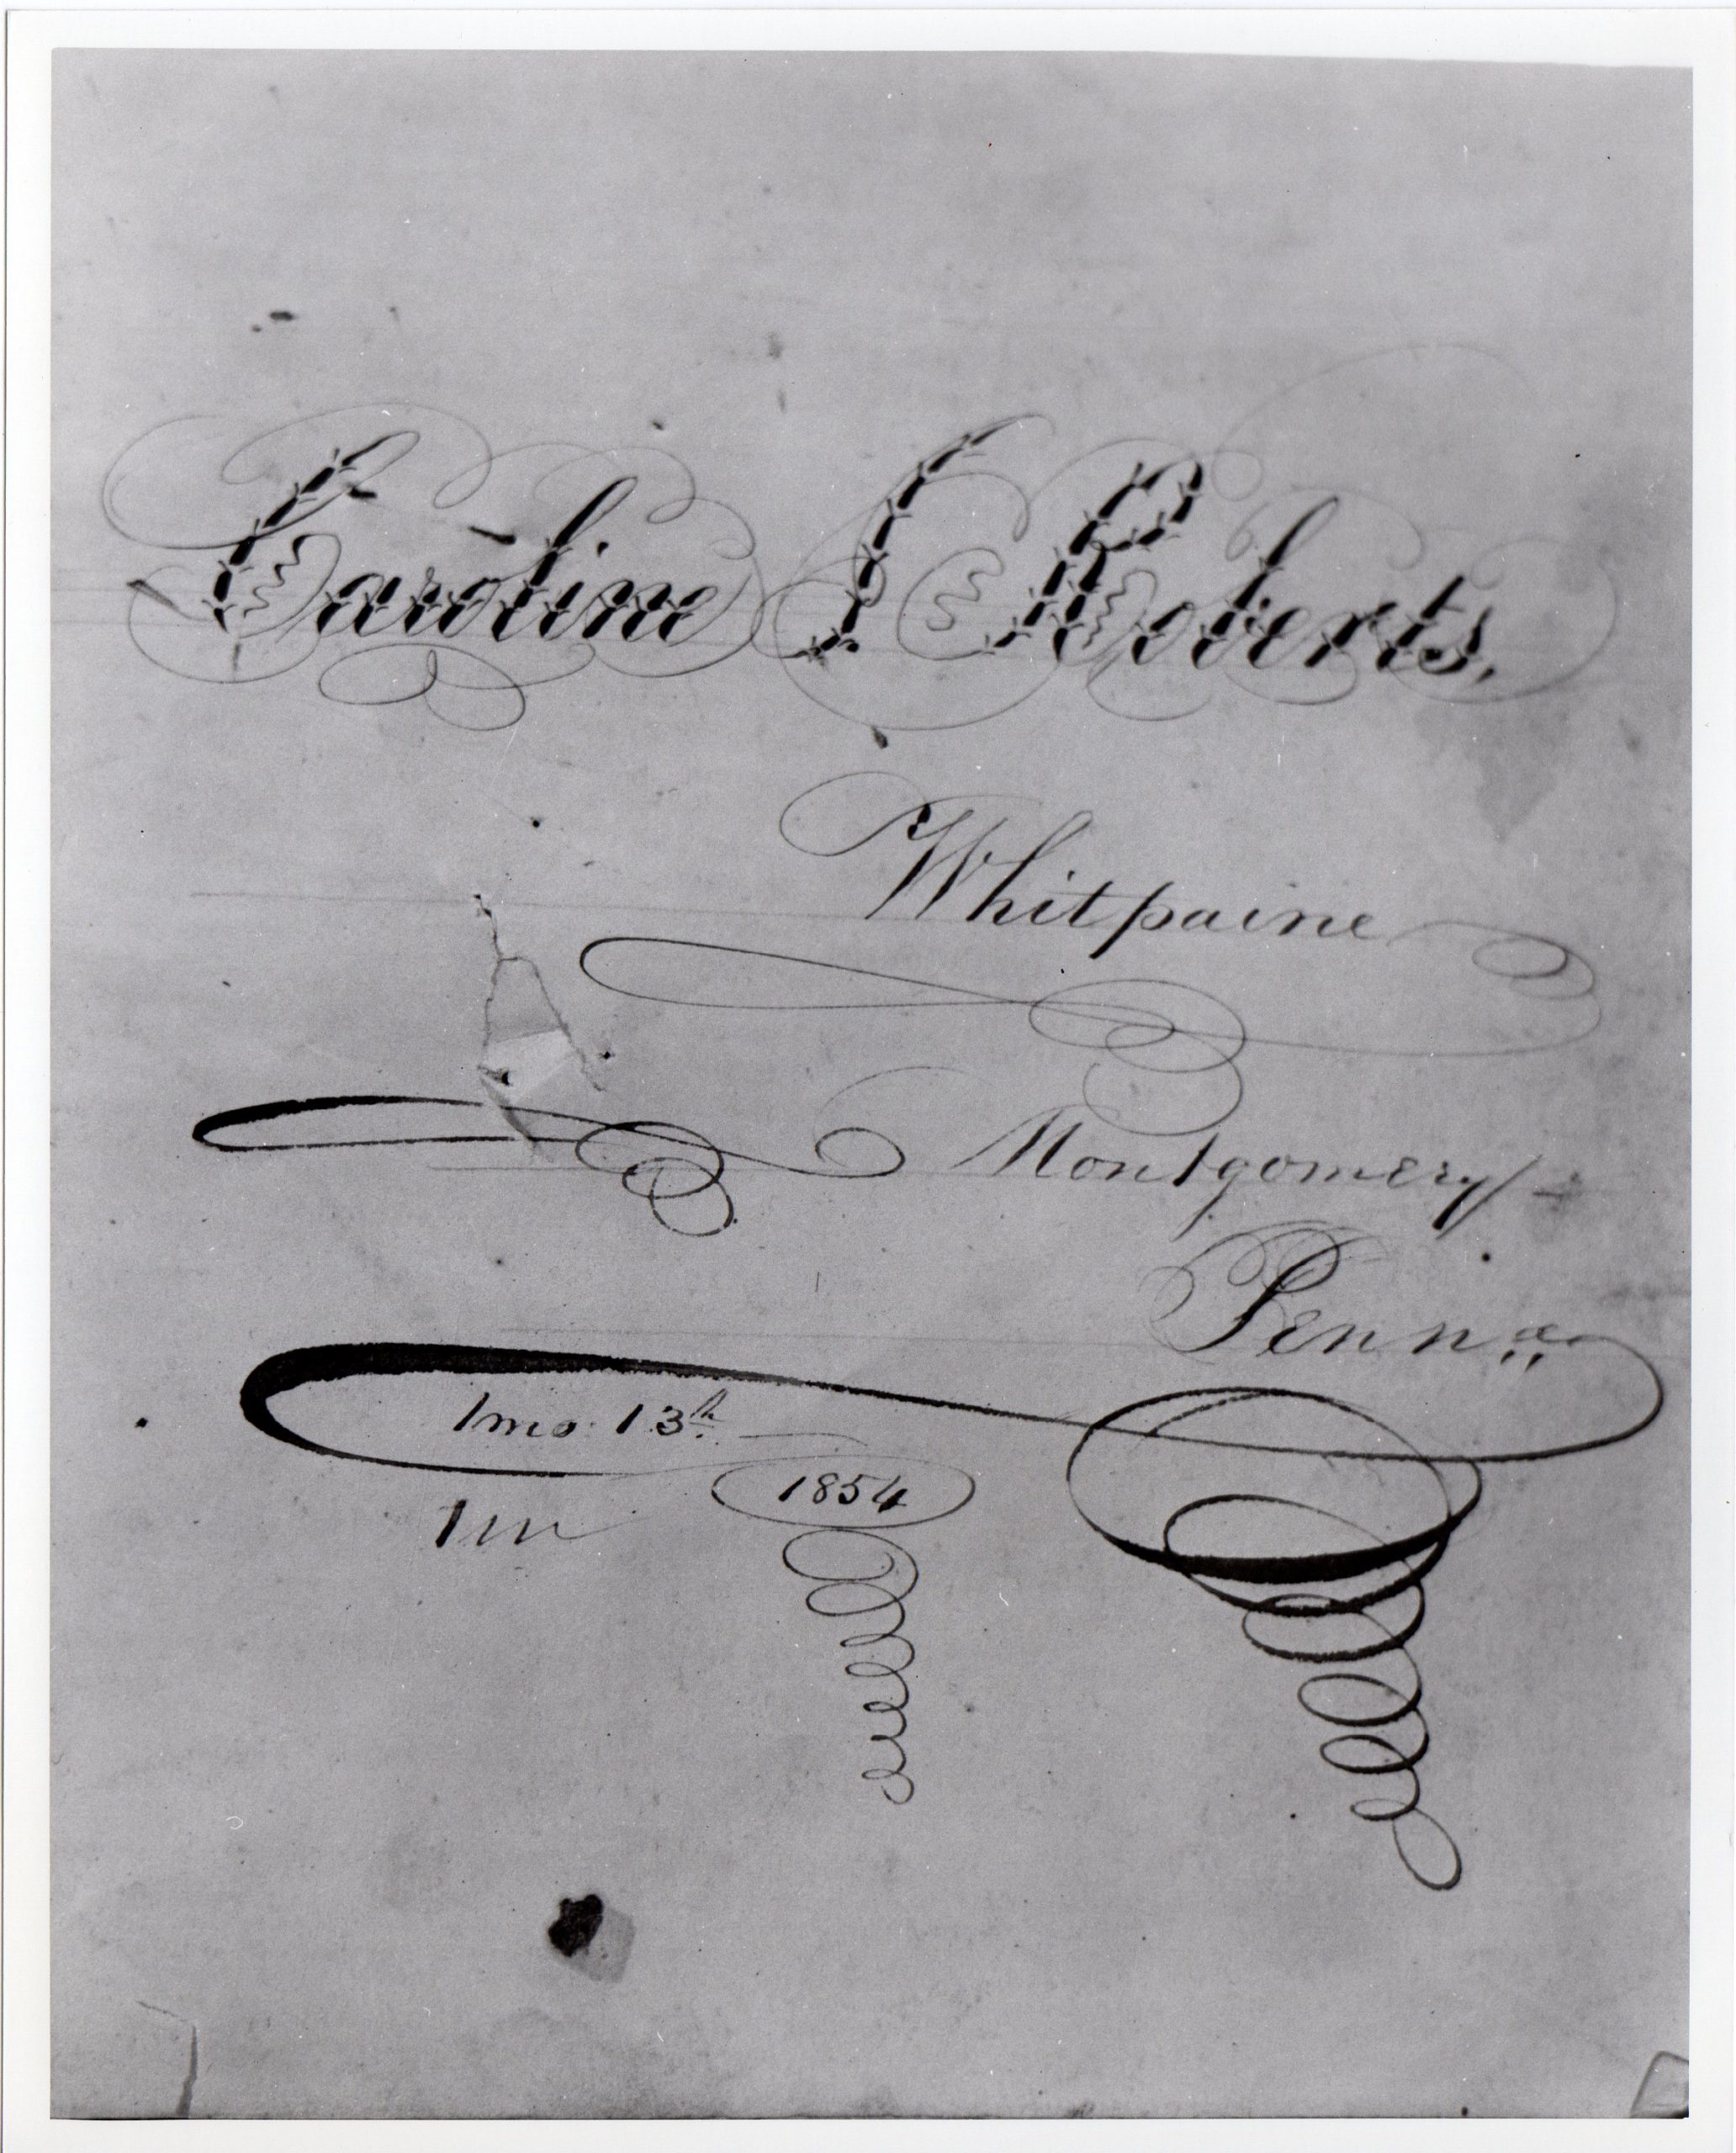 Caroline S Roberts,
Whitpaine
Montgomery
Penn.a
1mo. 13th
1854
1m